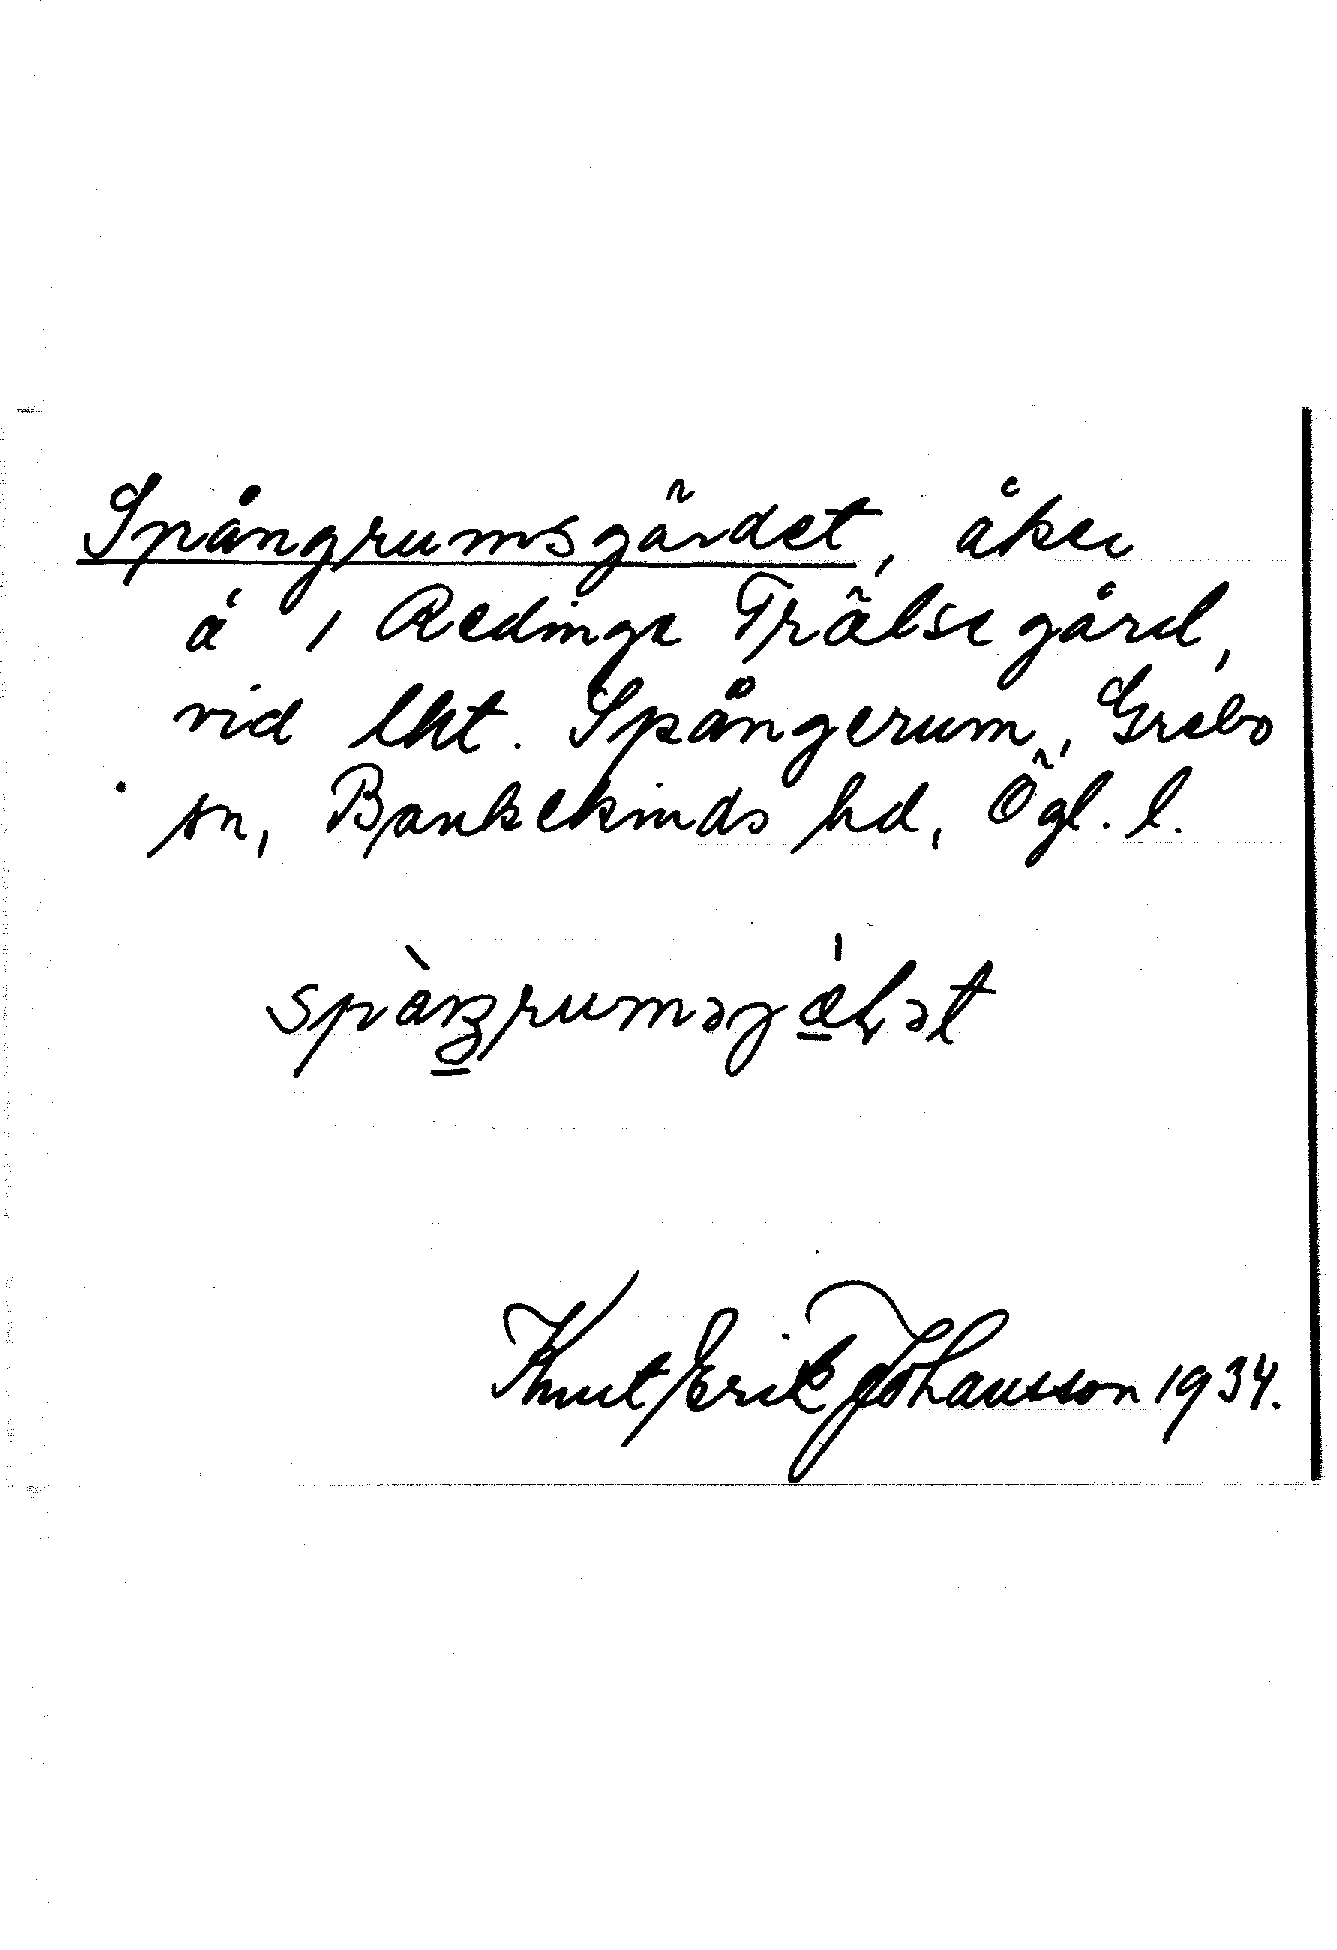 Spångrumsgärdet, åker
å 1 Redinge Frälsegård,
vid lht. Spångerum, Grebo
sn, Bankekinds hd, Ögl. l.
Knut Erik Johansson 1934.